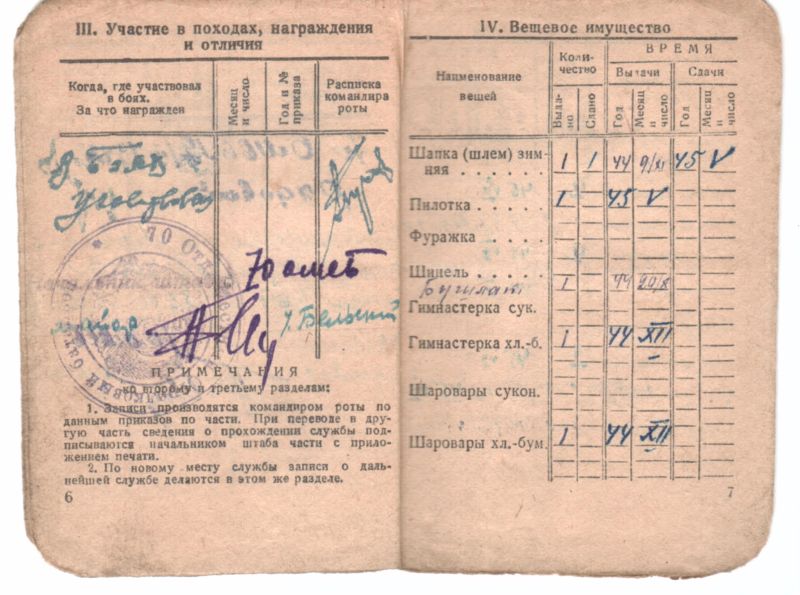 III. Участие в походах, награждения
и отличия
Когда, где участвовал
в боях.
За что награжден
Месяц
и число
Год и №
приказа
Расписка
командира
роты
В боях
участвовал
70 От
70 омсб
Бельский
ПРИМЕЧАНИЯ
ко второму и третьему разделам:
1. Записи производятся командиром роты по
данным приказов по части. При переводе в дру-
гую часть сведения о прохождении службы под-
писываются начальником штаба части с прило-
жением печати.
2. По новому месту службы записи о даль-
нейшей службе делаются в этом же разделе.
6
IV. Вещевое имущество
Наименование
вещей
Коли-
чество
ВРЕМЯ
Выдачи
Сдачи
Выда-
но
Сдано
Год
Месяц
и
число
Год
Месяц
и
число
Шапка (шлем) зим-
няя 1 1 44 9/XI 45 V
Пилотка . . . . . 1 45 V
Фуражка . . . .
Шинель . . . . .
Бушлат 1 44
Гимнастерка сук.
Гимнастерка хл.-б. 1 44 XII
Шаровары сукон.
Шаровары хл.-бум. 1 44 XII
7